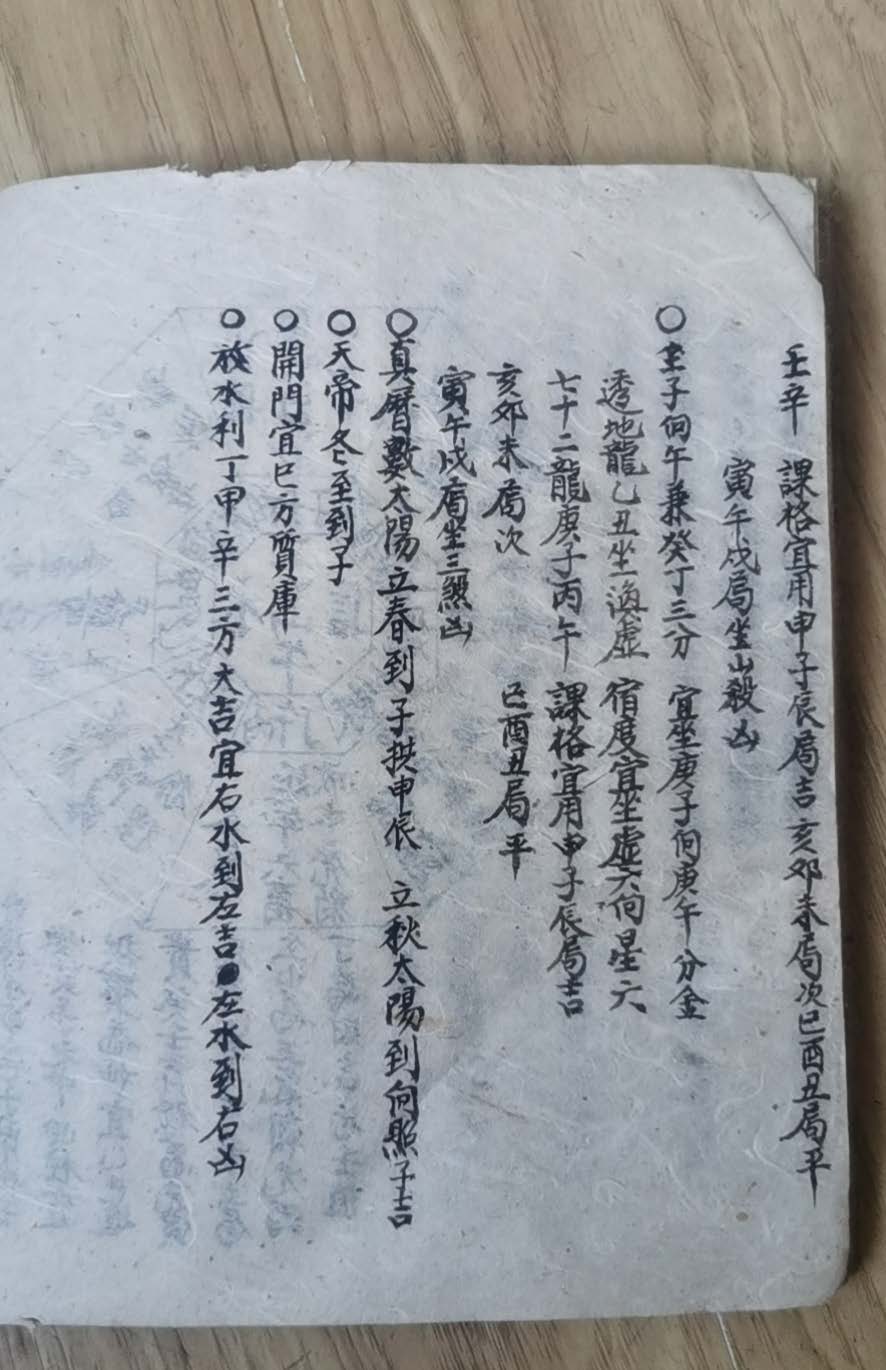 壬辛 課格宜用申子辰局吉亥卯未局次巳酉丑局平
寅午戌局坐山殺凶
○ 子向午兼癸丁三分 宜坐庚子向庚午分金
透地龍乙丑坐海虛 宿度宜坐虛六向星六
七十二龍庚子丙午 課格宜用申子辰局吉
亥卯未局次 巳酉丑局平
寅午戌局坐三煞凶
○真曆數太陽立春到子拱申辰 立秋太陽到向照子吉
○天帝冬至到子
○開門宜巳方質庫
○放水利丁甲辛三方大吉宜右水到左吉 左水到右凶